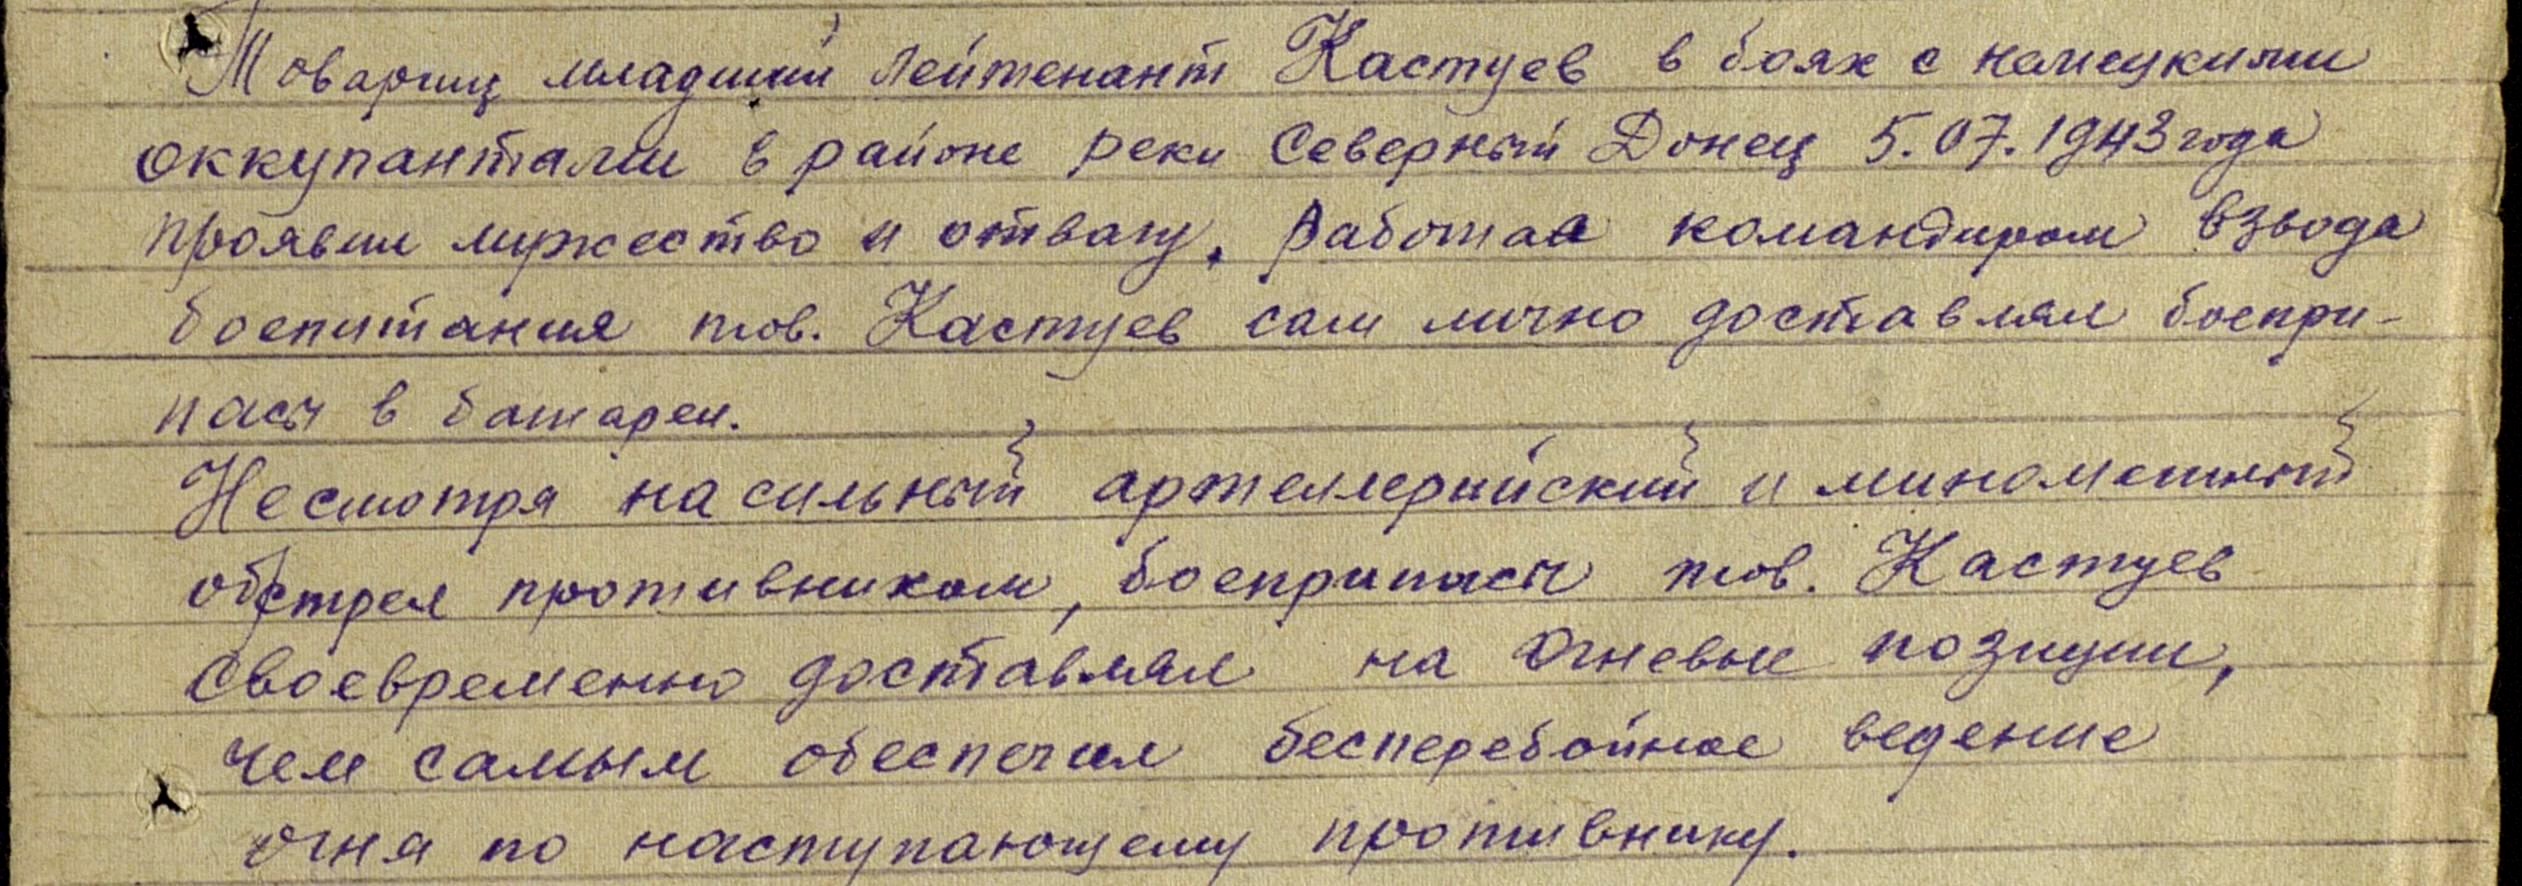 Товарищ младший лейтенант Кастуев в боях с немецкими
оккупантами в районе реки Северный Донец 5.07.1943 года
проявил мужество и отвагу. Работая командиром взвода
боепитания тов. Кастуев сам лично доставлял боепри-
пасы в батареи.
Несмотря на сильный артеллерийский и минометный
обстрел противником, боеприпасы тов. Кастуев
своевременно доставлял на огневые позиции,
чем самым обеспечил бесперебойное ведение
огня по наступающему противнику.